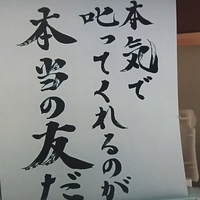 本気で
叱ってくれるのが
本当の友だ